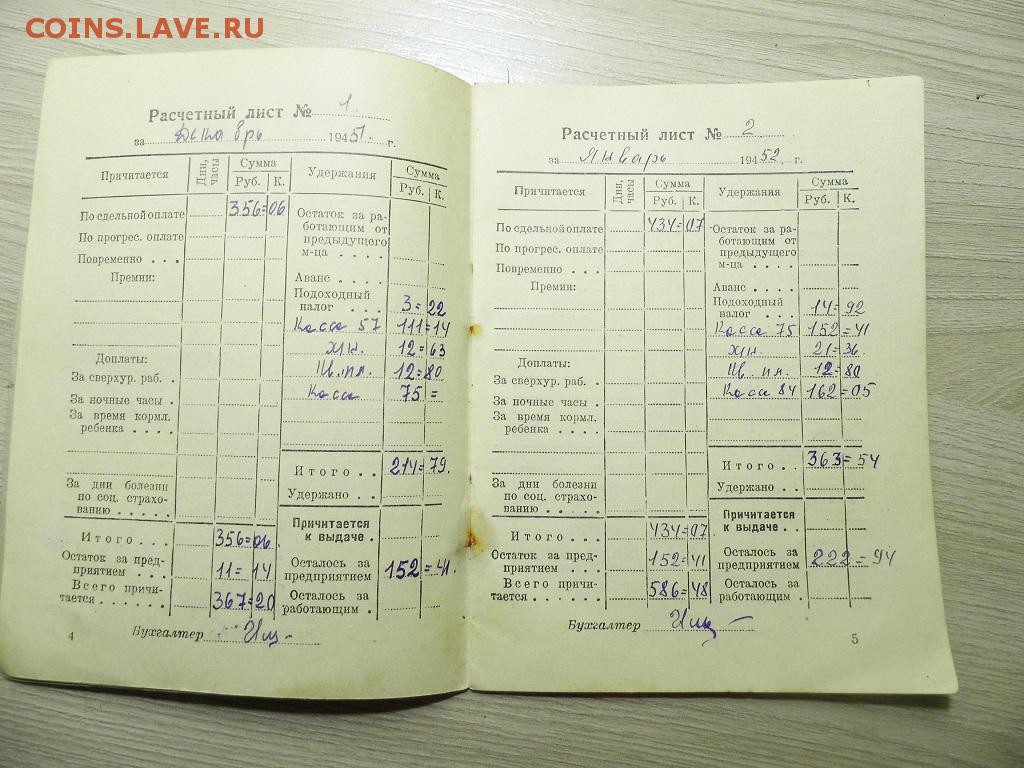 COINS.LAVE.RU
Расчетный лист № 1
за Декабрь 1951 г.
Причитается Дни, часы Сумма Удержания Сумма
Руб. К. Руб. К.
По сдельной оплате 356=06 Остаток за ра-
ботающим от
По прогрес. оплате предыдущего
м-ца . . . .
Повременно . . .
Премии: Аванс . . . .
Подоходный
налог . . . 3=22
Касса 57 111=14
хлн. 12=63
Доплаты: Цв. пл. 12=80
За сверхур. раб. . Касса 75=
За ночные часы .
За время кормл.
ребенка . . . .
Итого . . 214=79.
За дни болезни Удержано . .
по соц. страхо-
ванию . . . . . Причитается
к выдаче .
Итого . . . 356=06
Остаток за пред- Осталось за
приятием . . . 11=14 предприятием 152=41.
Всего причи- Осталось за
тается . . . . . . 367=20 работающим .
Бухгалтер
4
Расчетный лист № 2
за Январь 1952 г.
Причитается Дни, часы Сумма Удержания Сумма
Руб. К. Руб. К.
По сдельной оплате 434=07 Остаток за ра-
ботающим от
По прогрес. оплате предыдущего
м-ца . . . .
Повременно . . .
Премии: Аванс . . . .
Подоходный
налог . . . 14=92
Касса 75 152=41
хлн. 21=36
Доплаты: Цв. пл. 12=80
За сверхур. раб. . Касса 84 162=05
За ночные часы .
За время кормл.
ребенка . . . .
Итого . . 363=54
За дни болезни Удержано . .
по соц. страхо-
ванию . . . . . Причитается
к выдаче . .
Итого . . . 434=07
Остаток за пред- Осталось за
приятием . . . 152=41 предприятием 222=94
Всего причи- Осталось за
тается . . . . . . 586=48 работающим .
Бухгалтер
5